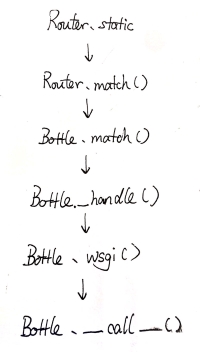 Router.static
Router.match()
Bottle.match()
Bottle._handle()
Bottle.wsgi()
Bottle.__call__()